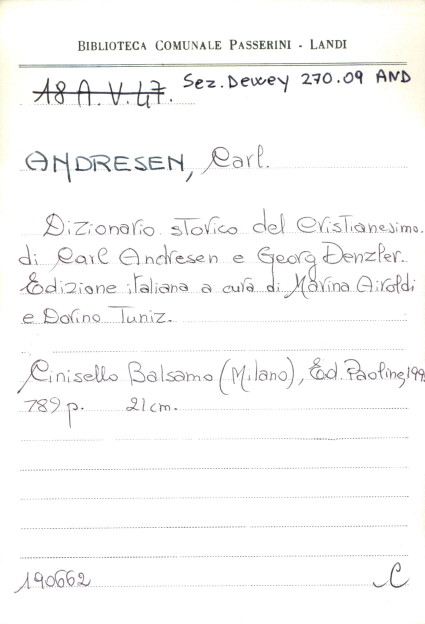 BIBLIOTECA COMUNALE PASSERINI - LANDI
18 A.V.47. Sez.Dewey 270.09 AND
ANDRESEN, Carl.
Dizionario storico del Cristianesimo.
di Carl Andresen e Georg Denzler.
Edizione italiana a cura di Marina Airoldi
e Dorino Tuniz.
Cinisello Balsamo (Milano), Ed. Paoline, 199
789 p. 21 cm.
190662 C